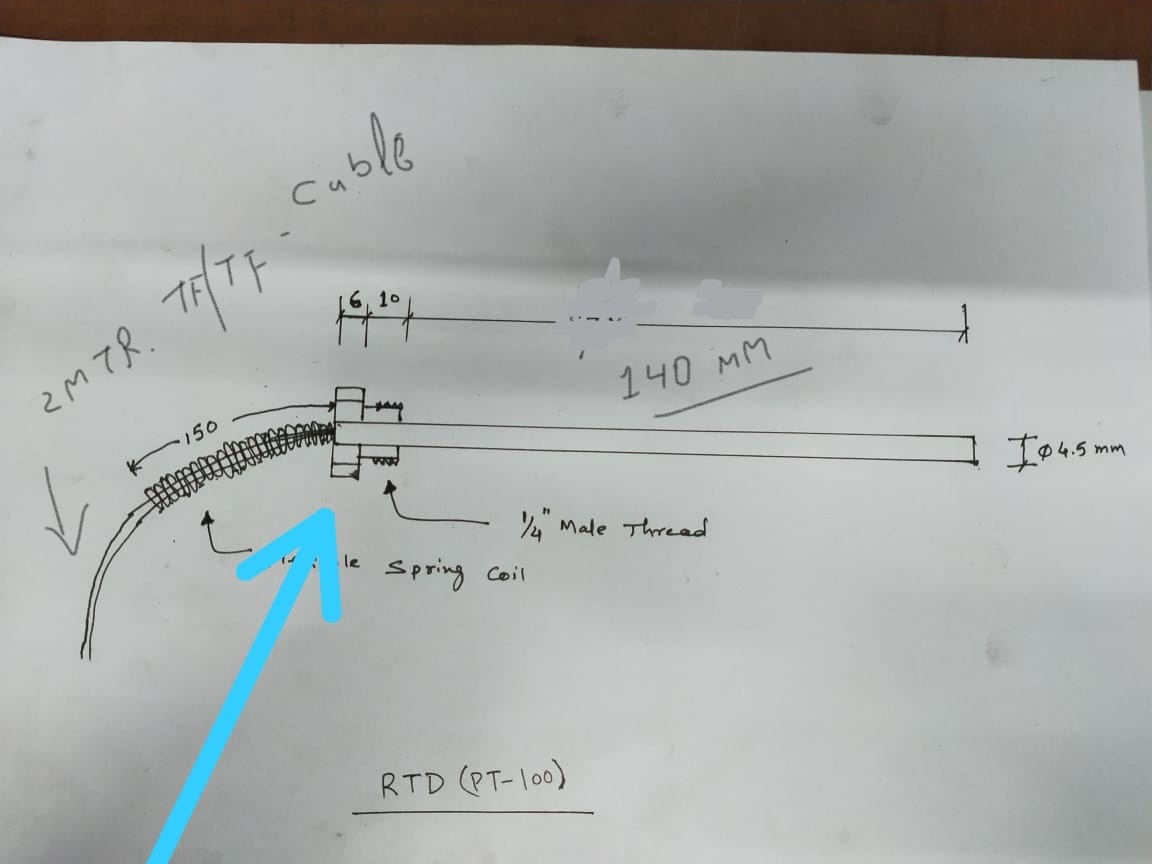 2 MTR. TF/TF - Cable
6 10
140 MM
150
Φ 4.5 mm
1/4" Male Thread
Spring Coil
RTD (PT-100)